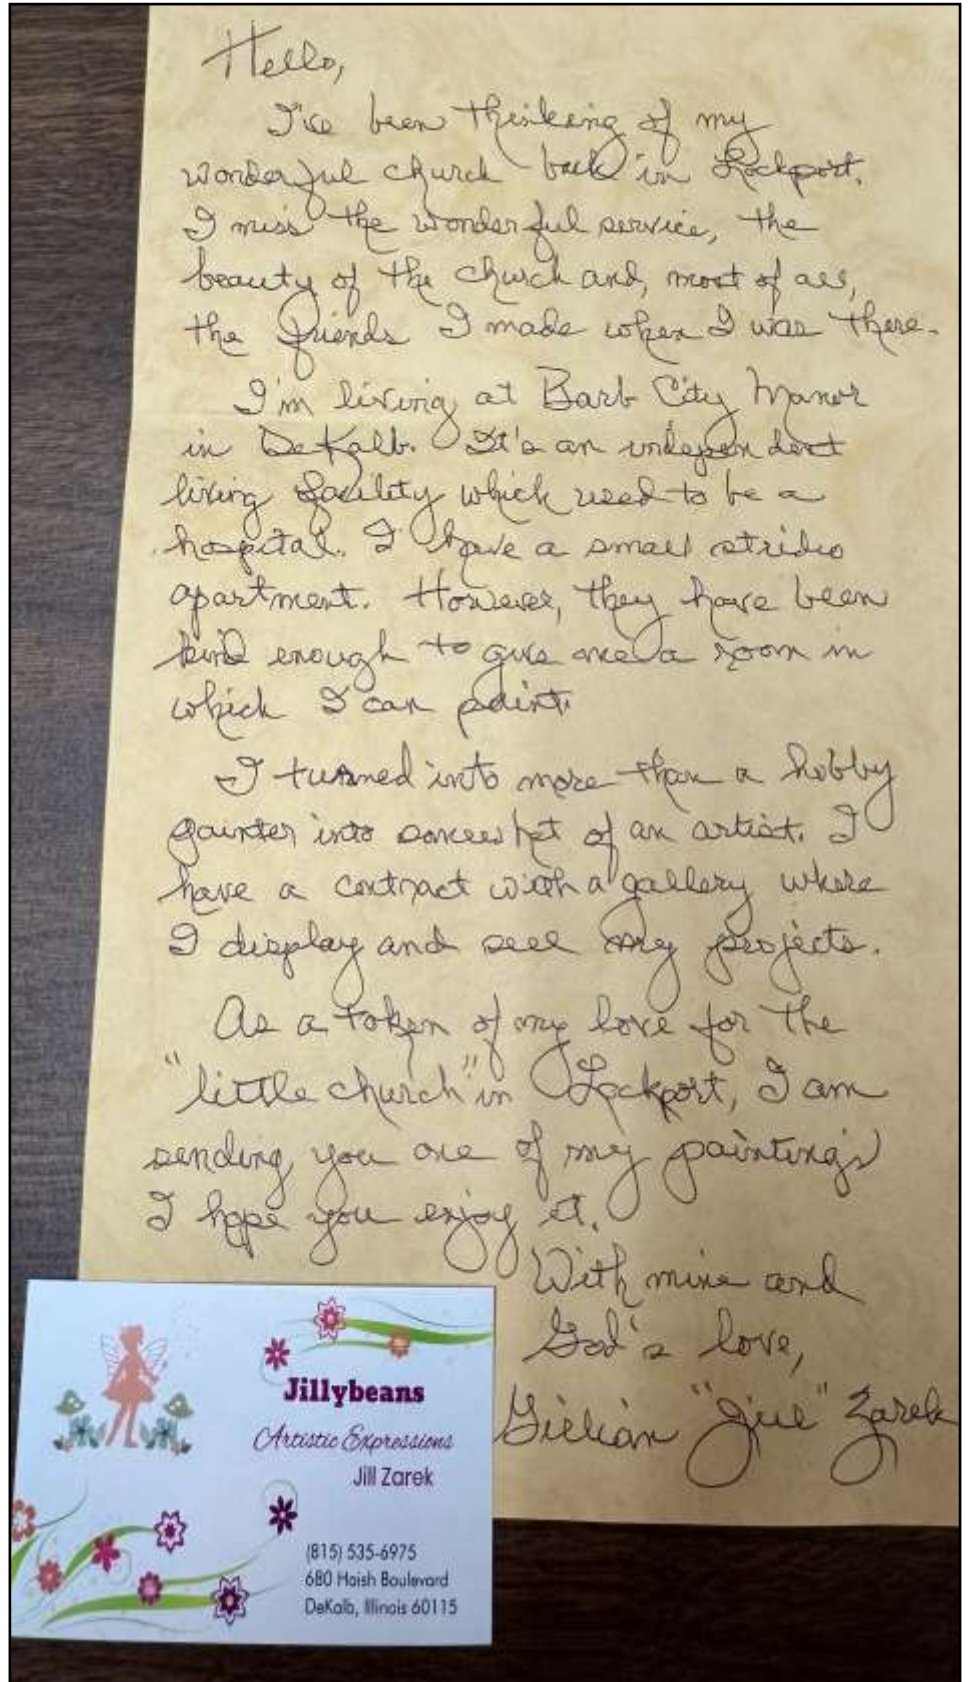 Hello,
I've been thinking of my
wonderful church back in Lockport.
I miss the wonderful service, the
beauty of the church and, most of all,
the friends I made when I was there.
I'm living at Barb City Manor
in DeKalb. It's an independent
living facility which used to be a
hospital. I have a small studio
apartment. However, they have been
kind enough to give me a room in
which I can paint.
I turned into more than a hobby
painter into somewhat of an artist. I
have a contract with a gallery where
I display and sell my projects.
As a token of my love for the
"little church" in Lockport, I am
sending you one of my paintings
I hope you enjoy it.
With mine and
God's love,
Gillian "Jill" Zarek
Jillybeans
Artistic Expressions
Jill Zarek
(815) 535-6975
680 Haish Boulevard
DeKalb, Illinois 60115